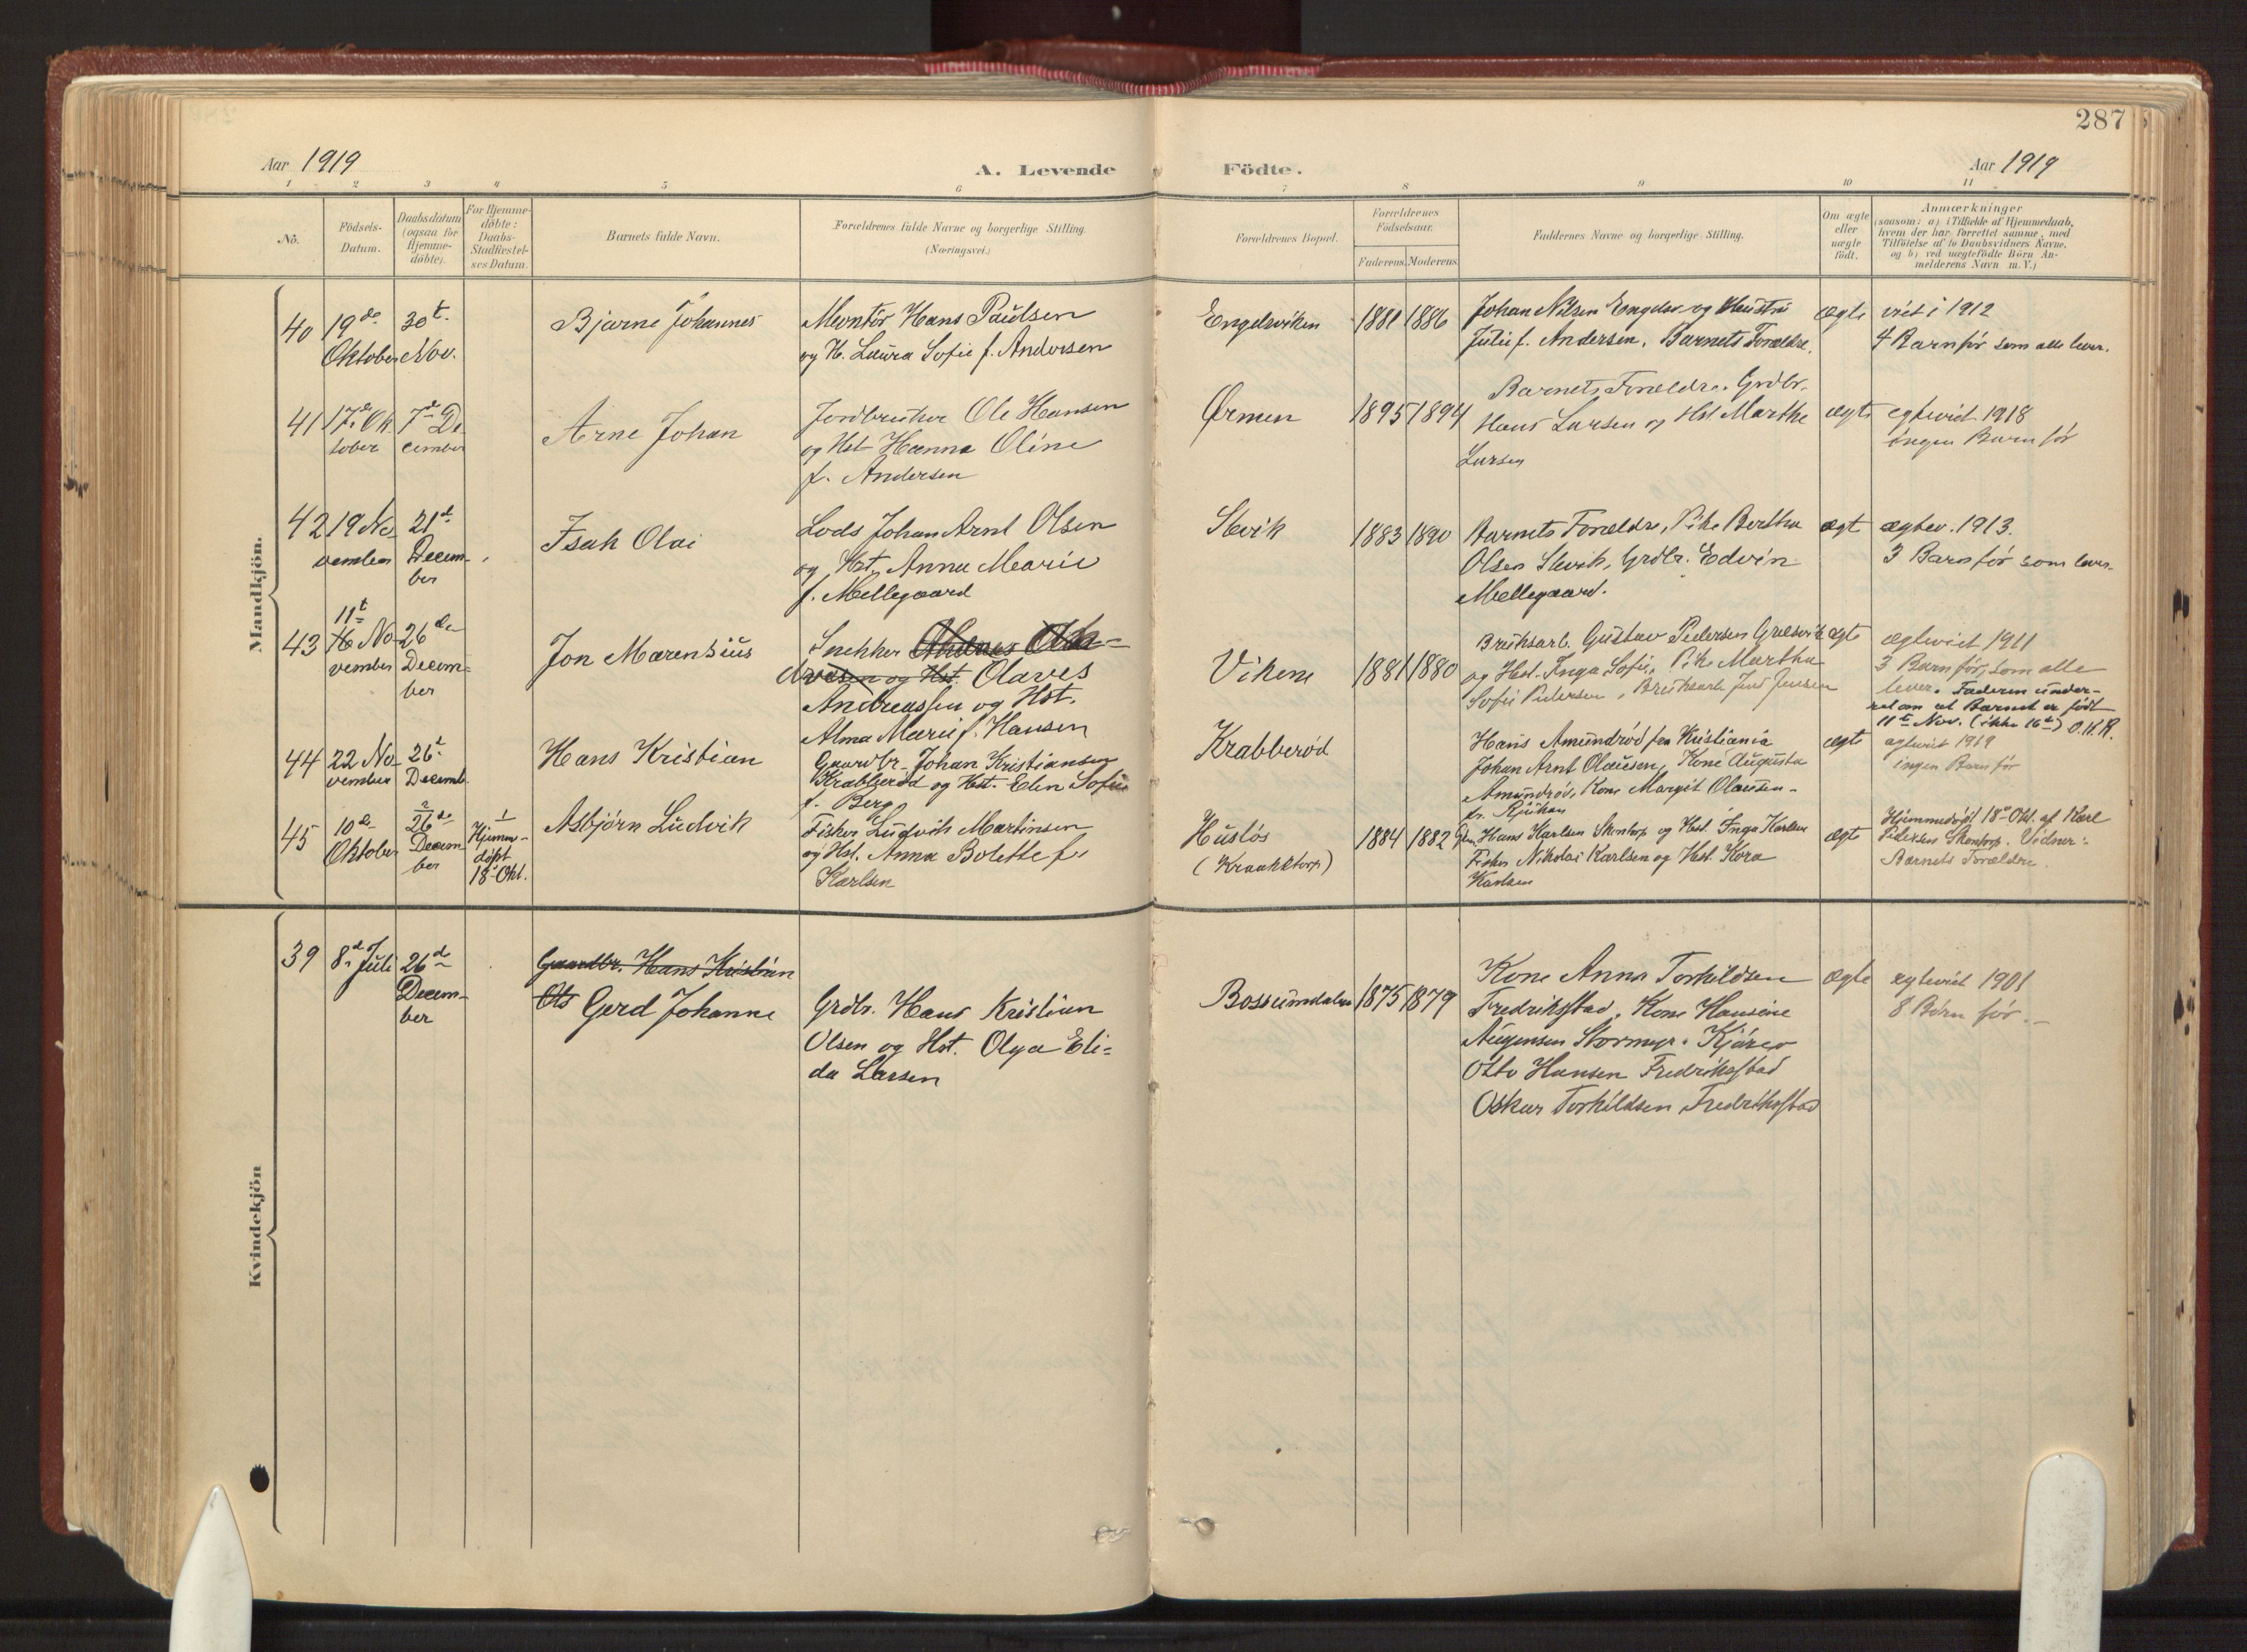 287
Aar 1919
A. Levende Födte.
Aar 1919
1 2 3 4 5 6 7 8 9 10 11
Nö.
Födsels-
Datum.
Daabsdatum
(ogsaa for
Hjemme-
döbte).
For Hjemme-
döbte:
Daabs-
Stadfæstel-
ses Datum.
Barnets fulde Navn.
Forældrenes fulde Navne og borgerlige Stilling.
(Næringsvei.)
Forældrenes Bopæl.
Forældrenes
Födselsaar.
Faderens. Moderens.
Faddernes Navne og borgerlige Stilling.
Om ægte
eller
uægte
födt.
Anmærkninger
(saasom: a) i Tilfælde af Hjemmedaab,
hvem der har forrettet samme, med
Tilföielse af to Daabsvidners Navne,
og b) ved uægtefödte Börn An-
melderens Navn m. V.)
Mandkjön.
40
19de
Oktober
30t.
Nov.
Bjarne Johannes
Montör Hans Paulsen
og H. Laura Sofie f. Andersen
Engelsviken
1881 1886
Johan Nilsen Engelsv og Hustru
Julie f. Andersen, Barnets Forældre.
ægte
viet i 1912
4 Barn för som alle lever.
41
17de Ok
tober
7de De
cember
Arne Johan
Jordbruker Ole Hansen
og Hst Hanna Oline
f. Andersen
Ørmen
1895 1894
Barnets Forældre. Grdbr.
Hans Larsen og Hst Marthe
Larsen
ægte
egteviet 1918
ingen Barn för
42
19 No
vember
21de
Decem-
ber
Isak Olai
Lods Johan Arnt Olsen
og Hst. Anna Marie
f. Mellegaard
Slevik
1883 1890
Barnets Forældre, Pike Bertha
Olsen Slevik, Grdbr. Edvin
Mellegaard.
ægte
ægtev. 1913.
3 Barn för som lever.
43
11t
16 No-
vember
26de
Decem-
ber
Jon Marensius
Snekker
og Hst. Olaves
Andreassen og Hst.
Alma Marie f. Hansen
Vikene
1881 1880
Bruksarb. Gustav Pedersen Græsvik
og Hst. Inga Sofie, Pike Martha
Sofie Pedersen, Bruksarb Jens Jensen
ægte
ægteviet 1911
3 Barn för, som alle
lever. Faderen under-
ret om at Barnet er födt
11te Nov. (ikke 16de) O.H.R.
44
22 No-
vember
26t
Decemb.
Hans Kristian
Gaardbr. Johan Kristiansen
Krabberöd og Hst. Elen Sofie
f. Berg
Krabberöd
Hans Amundröd fra Kristiania
Johan Arnt Olausen, Kone Augusta
Amundröd, Kone Margit Olausen-
fr. Rjukan
ægte
egteviet 1919
ingen Barn för
45
10de
Oktober
2
26de
Decem
ber
1
Hjemme-
döpt
18 Okt.
Asbjörn Ludvik
Fisker Ludvik Martinsen
og Hst. Anna Bolette f.
Karlsen
Huslös
(Kraakktorp)
1884 1882
Hans Karlsen Skontorp og Hst. Inga Karlsen
Fisker Nikolai Karlsen og Hst. Kora
Karlsen
ægte
Hjemmedöpt 18de Okt. af Karl
Pedersen Skontorp. Vidner:
Barnets Forældre.
Kvindekjön
39
8de Juli
26de
Decem-
ber
Gaardbr. Hans Kristian
Ols Gerd Johanne
Grdbr. Hans Kristian
Olsen og Hst. Olga Eli-
da Larsen
Bossumdalen
1875 1879
Kone Anna Torkildsen
Fredrikstad, Kone Hansine
Augensen Stormyr. Kjörer
Otto Hansen Fredrikstad
Oskar Torkildsen Fredrikstad
ægte
egteviet 1901
8 Børn för.